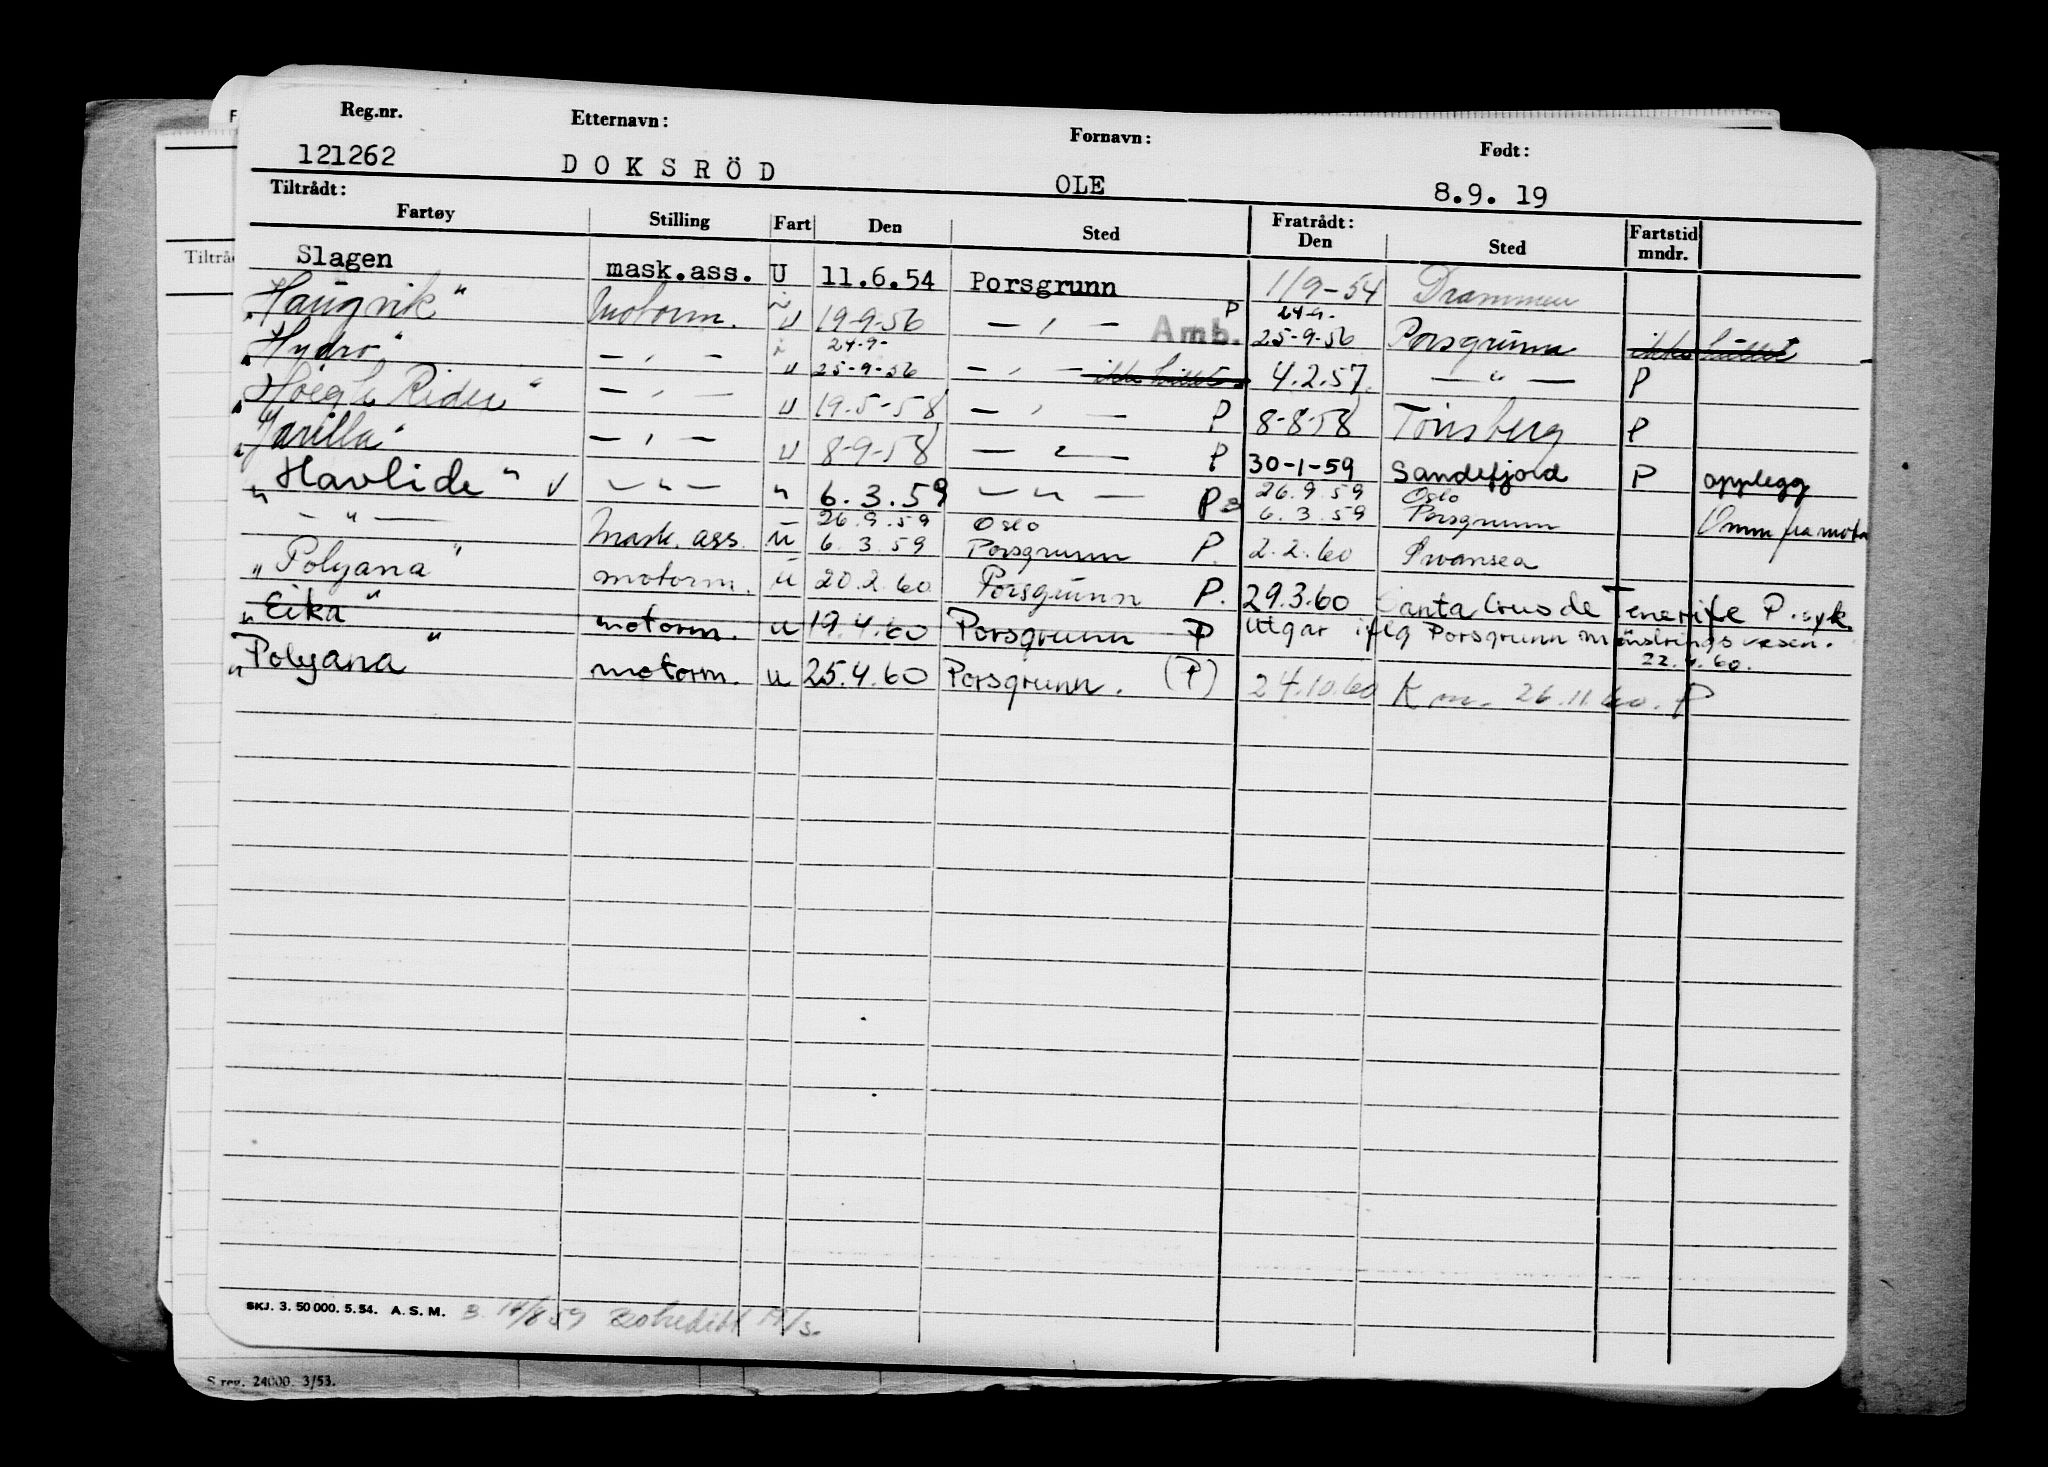 Reg.nr. Etternavn: Fornavn: Født:
121262 DOKSRÖD OLE 8.9. 19
Tiltrådt: Fratrådt:
Fartøy Stilling Fart Den Sted Den Sted Fartstid mndr.
Slagen mask.ass. U 11.6.54 Porsgrunn 1/9-54 Drammen
"Haugvik" Motorm. U 19-9-56 — " — Amb. P 24-9- 25-9-56 Porsgrunn ikke
"Hydro" — " — u 24-9- 25-9-56 — " — ikke 4.2.57 — " — P
"Höegh Rider" — " — u 19.5-58 — " — P 8-8-58 Tönsberg P
"Jarilla" — " — u 8-9-58 — " — P 30-1-59 Sandefjord P opplegg
"Havlide" v — " — " 6.3.59 — " — P 26.9.59 Oslo
6.3.59 Porsgrunn Omm fra motor
— " — Mask. ass. u 26.9.59 Oslo
6.3.59 Porsgrunn P. 2.2.60 Swansea
"Polyana" motorm. u 20.2.60 Porsgrunn P. 29.3.60 Santa Crus de Tenerife P. syk
"Eika" motorm. u 19.4.60 Porsgrunn P utgår iflg Porsgrunn mönstringsvesen.
22.4.60.
"Polyana" motorm. u 25.4.60 Porsgrunn. (P) 24.10.60 K m. 26.11.60. P
SKJ. 3. 50 000. 5.54. A. S. M.
S reg. 24000. 3/53.